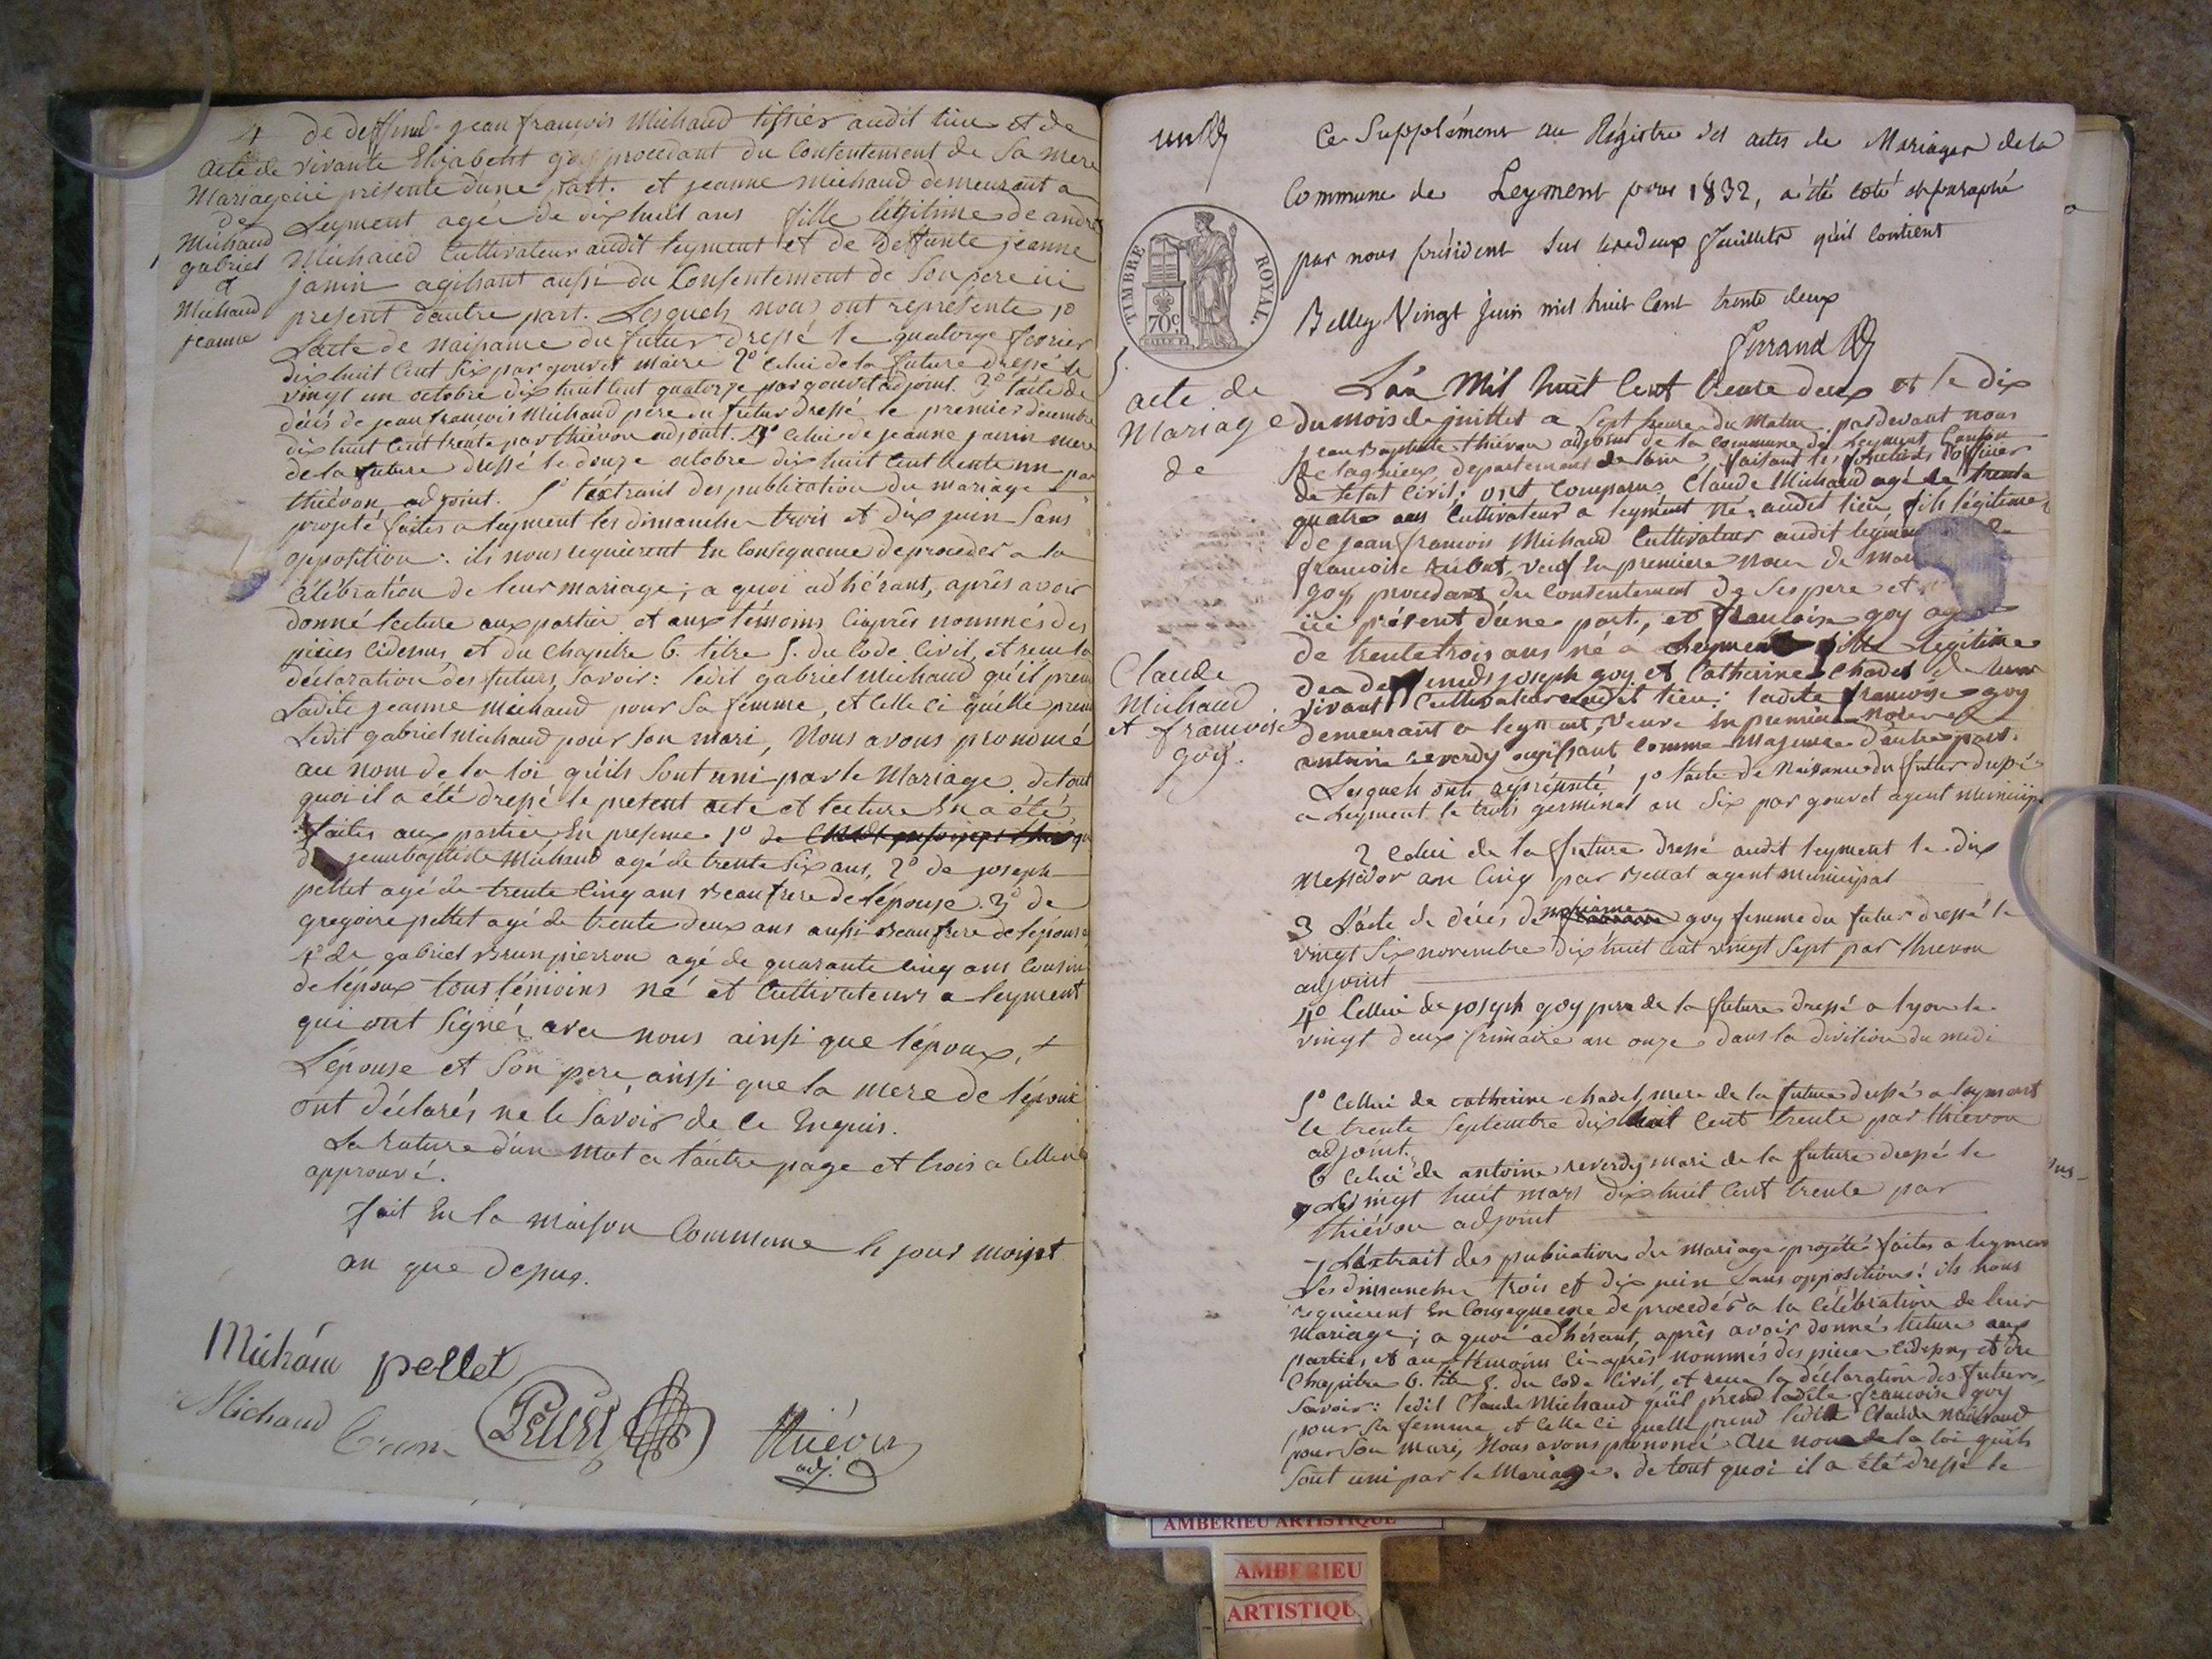 4
acte de
Mariage
de
Michaud
gabriel
et
Michaud
jeanne
de deffunt jean francois Michaud tissier audit lieu et de
vivante Elizabeth goy procedant du Consentement de Sa mere
ici présente d'une part. et jeanne Michaud demeurant a
Leyment agée de dix huit ans fille légitime de andré
Michaud Cultivateur audit leyment et de deffunte jeanne
janin agissant aussi du Consentement de Son pere ici
present d'autre part. Lesquels nous ont représenté 1º
L'acte de naissance du futur dressé le quatorze fevrier
dix huit Cent Six par gouvet maire 2º Celui de la future dressé le
vingt un octobre dix huit Cent quatorze par gouvet adjoint. 3º l'acte de
décés de jean francois Michaud pere du futur dressé le premier decembre
dix huit Cent trente par thiévon adjoint. 4º Celui de jeanne janin mere
de la future dressé le douze octobre dix huit Cent trente un par
thiévon adjoint. 5º l'éxtrait des publication du mariage
projeté faites a leyment les dimanches trois et dix juin Sans
opposition : ils nous requierent En Consequence de proceder a la
Célébration de leur mariage ; a quoi adhérant, après avoir
donné lecture aux parties et aux témoins Ciaprès nommés des
pièces Cidessus, et du Chapitre 6. titre 5. du Code Civil, et reçu la
déclaration des futurs, Savoir : ledit gabriel Michaud qu'il prend
Ladite jeanne michaud pour Sa femme, et Celle Ci quelle prend
Ledit gabriel michaud pour Son mari, Nous avons prononcé
au nom de la loi qu'ils Sont uni par le Mariage. de tout
quoi il a été dressé le present acte et lecture En a été
faites aux parties En presence 1º
de jean baptiste Michaud agé de trente Six ans, 2º de joseph
pellet agé de trente Cinq ans Beau frere de l'épouse. 3º de
gregoire pellet agé de trente deux ans aussi Beau frere de l'épouse
4º de gabriel Brunpierron agé de quarante Cinq ans Cousin
de l'époux tous témoins né et Cultivateurs a leyment
qui ont Signés avec nous ainsi que l'époux,
L'épouse et Son pere, ainssi que la mere de l'époux
ont déclarés ne le Savoir de Ce Enquis.
La rature d'un Mot a l'autre page et trois a Celle ci
approuvé.
fait En la maison Commune le jour mois et
an que dessus.
pellet
Michaud
Thiévon
adj.
Ce Supplément au Régistre des actes de Mariages de la
Commune de Leyment pour 1832, a été coté et paraphé
par nous président Sur les deux feuillets qu'il Contient
Belley Vingt Juin mil huit Cent trente deux
TIMBRE ROYAL.
70c
5.
acte de
Mariage
de
Claude
Michaud
et francoise
goy.
L'an Mil huit Cent trente deux et le dix
du mois de juillet a Sept heure du Matin pardevant nous
jean Baptiste thiévon adjoint de la Commune de Leyment Canton
de lagnieux departement de lain, faisant les fonctions d'officier
de l'etat Civil ; ont Comparus Claude Michaud agé de trente
quatre ans Cultivateur a leyment né audit lieu fils légitime
de jean francois Michaud Cultivateur audit
francoise veuf En premiere Noce de
goy, procedant du Consentement de Ses pere et
ici présent d'une part, et francoise goy
de trente trois ans né a Leyment fille legitime
joseph goy et Catherine Chadel de leur
vivant Cultivateur audit lieu : ladite francoise goy
demeurant a leyment, veuve En premiere Noce
antoine reverdy agissant Comme Majeure d'autre part.
Lesquels ont représenté, 1º l'acte de Naissance du futur dressé
a Leyment le trois germinal an Six par gouvet agent
2 Celui de la future dressé audit leyment le dix
Messidor an Cinq par Bellat agent municipal
3 L'acte de décés de goy femme du futur dressé le
vingt Six novembre dix huit Cent vingt Sept par thievon
adjoint
4º Cellui de joseph goy pere de la future dressé a lyon le
vingt deux frimaire an onze dans la division du midi
5º Cellui de catherine chadel, mere de la future dressé a leyment
le trente Septembre dix huit Cent trente par thievon
adjoint.
6 Celui de antoine reverdy mari de la future dressé le
vingt huit mars dix huit Cent trente par
thiévon adjoint
7 L'éxtrait des publication du mariage projété faites a leyment
Les dimanches trois et dix juin Sans oppositions : ils nous
requierent En Consequence de procedér a la Célébration de leur
Mariage ; a quoi adhérant, après avoir donné lecture aux
parties, et aux témoins Ci-après nommés des pieces Cidessus, et du
Chapitre 6. titre 5. du Code Civil, et reçu la déclaration des futurs,
Savoir : ledit Claude Michaud qu'il prend ladite francoise goy
pour Sa femme, et Celle Ci quelle prend ledit Claude Michaud
pour Son mari, Nous avons prononcé au nom de la loi qu'ils
Sont uni par le Mariage. de tout quoi il a été dressé le
AMBERIEU ARTISTIQUE
AMBERIEU
ARTISTIQU